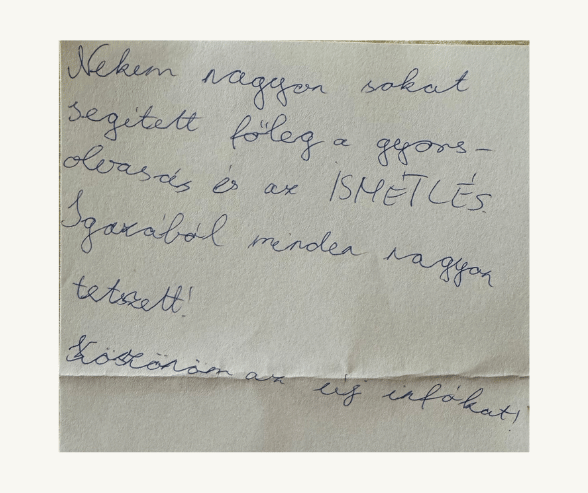 Nekem nagyon sokat
segített főleg a gyors-
olvasás és az ISMÉTLÉS.
Igazából minden nagyon
tetszett!
Köszönöm az új infókat!